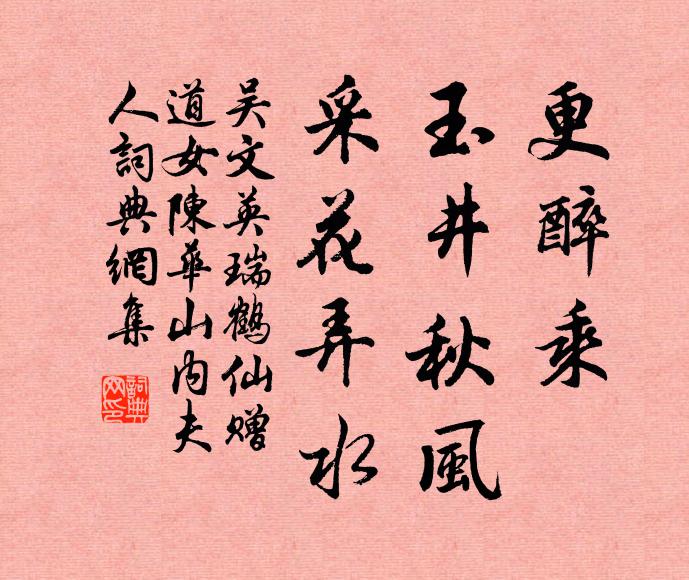 更醉乘
玉井秋風
采花弄水
吴文英瑞鶴仙赠
道女陳華山内夫
人詞典網集
詞典网印